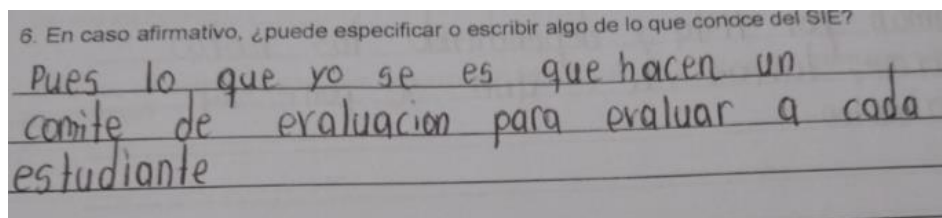 6. En caso afirmativo, ¿puede especificar o escribir algo de lo que conoce del SIE?
Pues lo que yo se es que hacen un
comite de evaluacion para evaluar a cada
estudiante